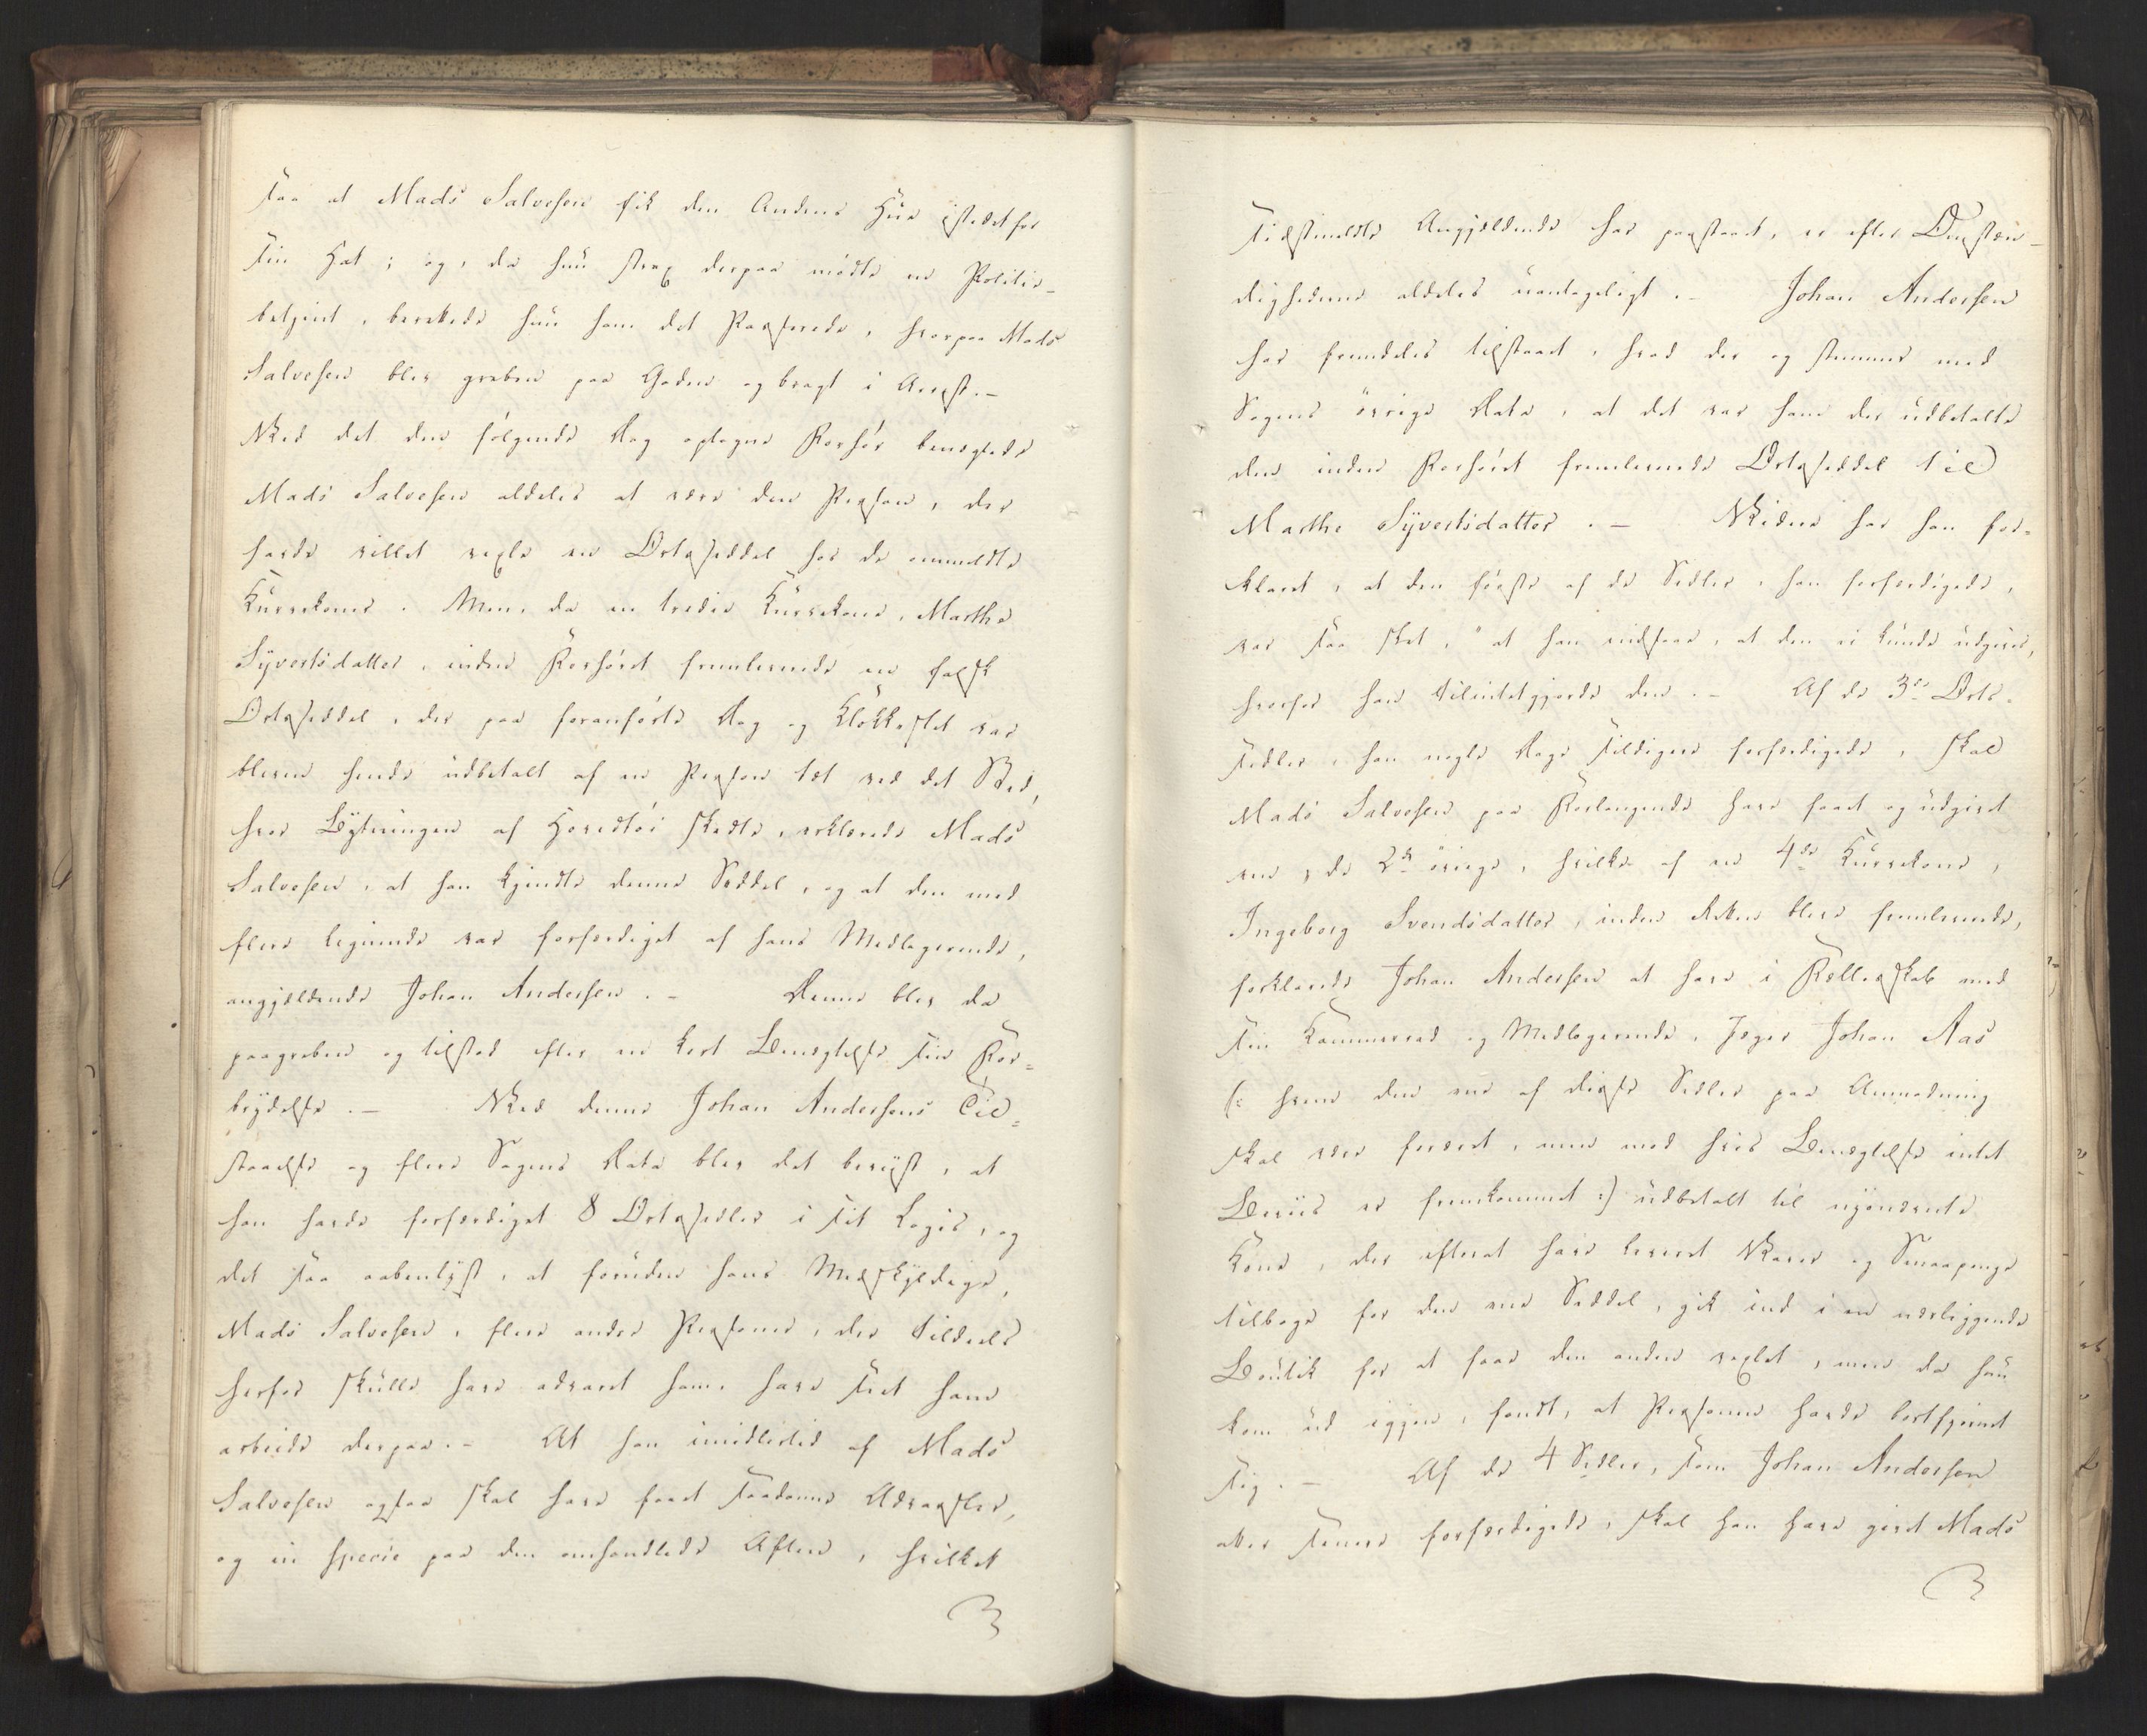 saa at Mads Salvesen fik den Andens Hue istedetfor
sin Hat; og, da hun strax derpaa mødte en Politie-
betjent, berettede hun ham det Passerede, hvorpaa Mads
Salvesen blev greben paa Gaden og bragt i Arrest.-
Ved det den følgende Dag optagne Forhør benægtede
Mads Salvesen aldeles at være den Person, der
havde villet vexle en Ortsseddel hos de ommeldte
Kurvekoner. Men, da en tredie Kurvekone, Marthe
Syvertsdatter, inden Forhøret fremleverede en falsk
Ortsseddel, der paa foranførte Dag og Klokkeslet var
bleven hende udbetalt af en Person tæt ved det Sted,
hvor Bytningen af Hovedtøi skedte, erklærede Mads
Salvesen, at han kjendte denne Seddel, og at den med
flere lignende var forfærdiget af hans Medlogerende,
angjældende Johan Andersen.- Denne blev da
paagreben og tilstod efter en kort Benægtelse sin For-
brydelse.- Ved denne Johan Andersens Til-
staaelse og flere Sagens Data blev det beviist, at
han havde forfærdiget 8 Ortssedler i sit Logis, og
det saa aabenlyst, at foruden hans Medskyldige,
Mads Salvesen, flere andre Personer, der tildeels
herfor skulle have advaret ham, have seet ham
arbeide derpaa.- At han imidlertid af Mads
Salvesen ogsaa skal have faaet saadanne Advarsler,
og in specie paa den omhandlede Aften, hvilket
sidstmeldte Angjældende har paastaaet, er efter Omstæn-
dighederne aldeles uantageligt.- Johan Andersen
har fremdeles tilstaaet, hvad der og stemmer med
Sagens øvrige Data, at det var ham der udbetalte
den inden Forhøret fremleverede Ortsseddel til
Marthe Syvertsdatter.- Videre har han for-
klaret, at den første af de Sedler, han forfærdigede,
var saa slet, at han indsaae, at den ei kunde udgives,
hvorfor han tilintetgjorde den.- Af de 3de Orts-
sedler, han nogle Dage tildigere forfærdigede, skal
Mads Salvesen paa Forlangende have faaet og udgivet
een; de 2de øvrige, hvilke af en 4de Kurvekone,
Ingeborg Svendsdatter, inden Retten bleve fremleverede,
forklarede Johan Andersen at have i Fællesskab med
sin Kammerad og Medlogerende, Jæger Johan Aas
(: hvem den ene af disse Sedler paa Anmodning
skal være foræret, men mod hvis Benægtelse intet
Beviis er fremkommet :) udbetalt til nysnævnte
Kone, der efterat have leveret Varer og Smaapenge
tilbage for den ene Seddel, gik ind i en nærliggende
Boutik for at faae den anden vexlet, men da hun
kom ud igjen, fandt, at Personen havde bortfjernet
sig.- Af de 4 Sedler, som Johan Andersen
atter senere forfærdigede, skal han have givet Mads